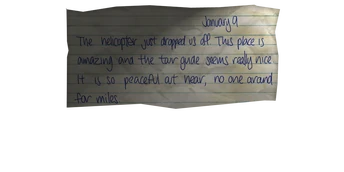 January 9
The helicopter just dropped us off. This place is
amazing and the tour guide seems really nice
It is so peaceful out hear, no one around
for miles